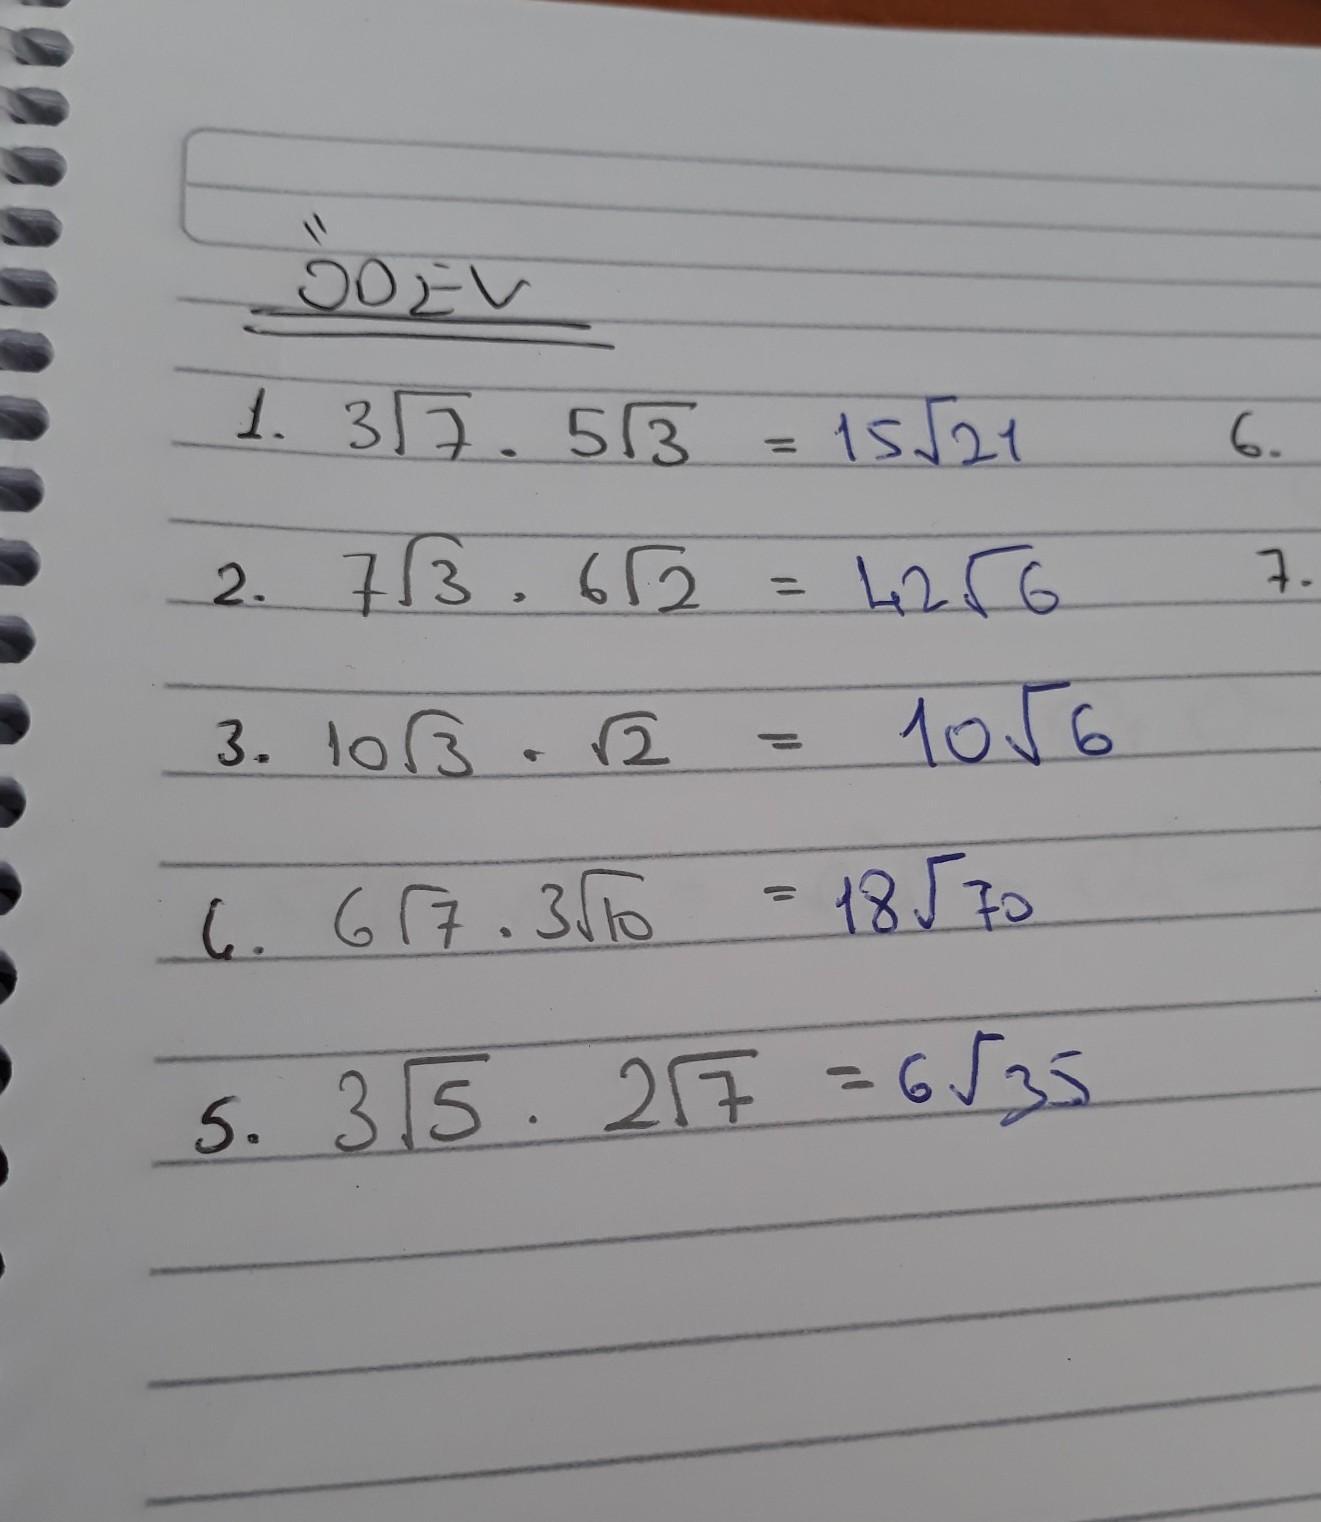 ÖDEV
1. 3√7 . 5√3 = 15√21
6.
2. 7√3 . 6√2 = 42√6
7.
3. 10√3 . √2 = 10√6
4. 6√7 . 3√10 = 18√70
5. 3√5 . 2√7 = 6√35